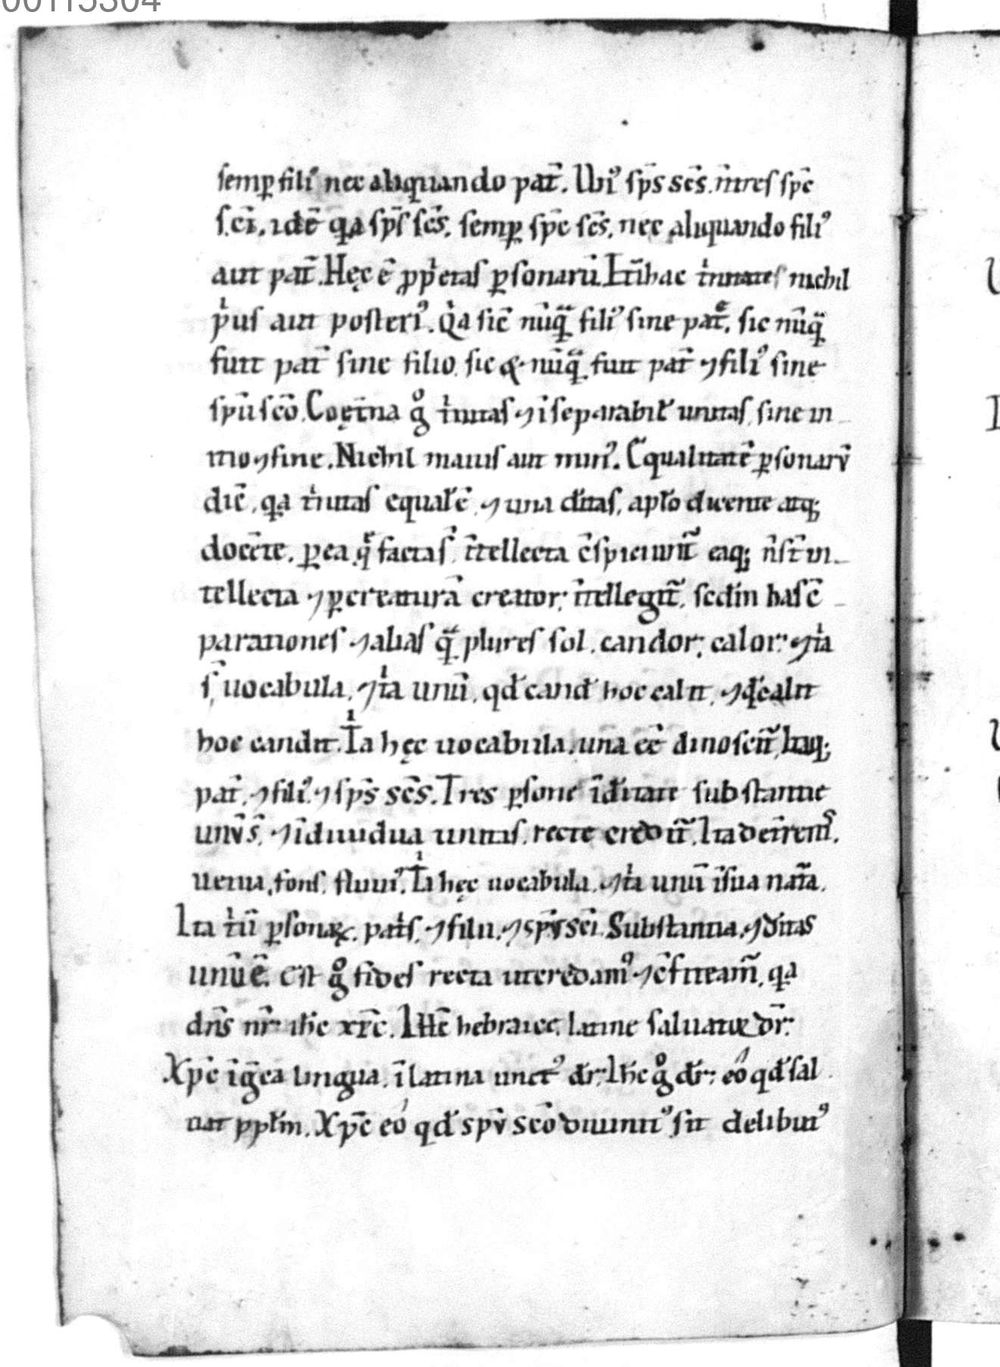 00115304
semꝑ filiꝰ nec aliquando pat̄. Ubiꝰ sp̄s sc̄s. sp̄c
sc̄i. idē qa sp̄s sc̄s. semꝑ sp̄c sc̄s. nec aliquando filiꝰ
aut pat̄. Hęc ē ꝑsonarū. In hac nichil
pͥus aut posteriꝰ. Qͥa sic nūqͣ filiꝰ sine pat̄e. sic nūqͣ
fuit pat̄ sine filio. sic & nūqͣ fuit pat̄ ⁊ filiꝰ sine
sp̄u sc̄o. Coęt̄na gͦ tͥnitas ⁊ īseparabilꝭ unitas. sine in
itio ⁊ fine. Nichil maius aut minꝰ. Equalitatē ꝑsonarū
dic̄. qa tͥnitas equalꝭ ē. ⁊ una dītas. apl̄o dicente atq;
docēte. ꝑ ea q̄ facta s̄. ītellecta c̄spiciunt᷑ eaq;
tellecta ⁊ ꝑ creaturā creator. ītellegit᷑. sed in has c̄
parationes ⁊ alias qͣ plures sol. candor. calor. ⁊ tͥa
s̄ uocabula. ⁊ tͥa unū. qd̄ candꝭ hoc calet. ⁊ qd̄ calet
hoc candet. Tͥa hęc uocabula. unā eē dinoscit᷑. Itaq;
pat̄. ⁊ filiꝰ. ⁊ sp̄s sc̄s. Tres ꝑsone ī dītate substantie
unū s̄. ⁊ īdiuidua unitas. recte credit᷑. Ita de t̄renis.
uena. fons. fluuiꝰ. Tͥa hęc uocabula. ⁊ tͥa unū ī sua nat̄a.
Ita tͥū ꝑsonaꝝ. pat̄s. ⁊ filii. ⁊ sp̄s sc̄i. Substantia. ⁊ dītas
unū ē. Est gͦ fides recta ut credamꝰ ⁊ c̄fiteam᷑. qa
dn̄s nr̄ ih̄c xp̄c. Ih̄c hebraice. latine saluator dr̄.
Xp̄c ī gͣca lingua. ī latina unctꝰ dr̄. Ih̄c gͦ dr̄. eo qd̄ sal
uat ppl̄m. Xp̄c eo qd̄ sp̄u sc̄o diuinitꝰ sit delibutꝰ